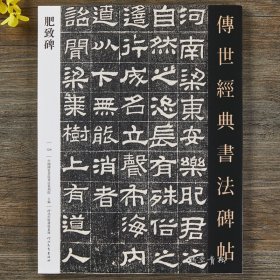 傳世經典書法碑帖
河南梁東安樂肥君之
自然之恣長有殊俗之
遙行成名立聲布海內
遼以下無能消者
詔聞梁棗樹上有道人
肥致碑